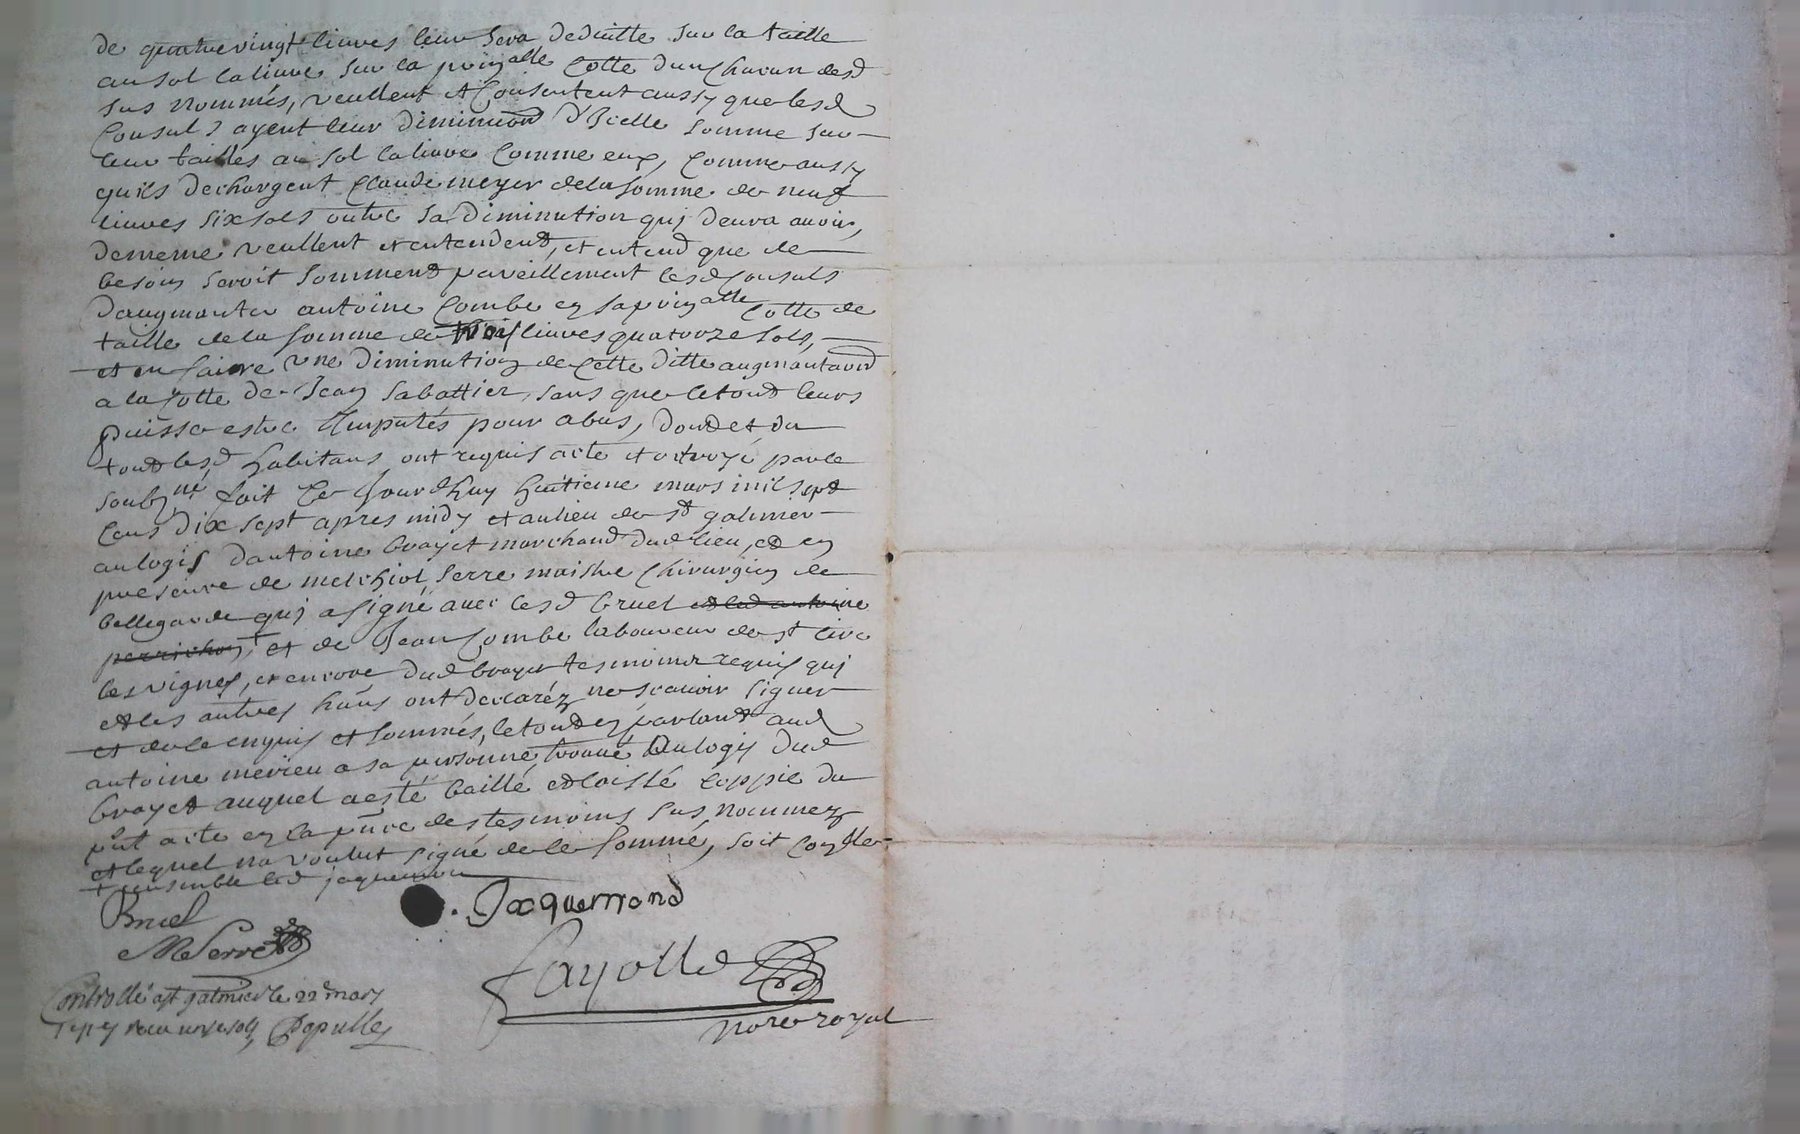 de quatrevingt livres leur sera deduitte sur la taille
au sol la livre sur la prinalle cotte d'un chacun desd
sus nommés, veullent et consentent aussy que lesd
consuls ayent leur diminuon d'icelle somme sur
leur tailles au sol la livre comme eux, comme aussy
quils dechargent claude meyer de la somme de neuf
livres six sols outre sa diminution quj devra avoir,
de meme veullent et entendent, et entend que de
besoin seroit somment pareillement lesd consuls
daugmenter antoine Combe en sa prinalle cotte de
taille de la somme de trois livres quatorze sols,
et en faire une diminution de cette ditte augmantaon
a la cotte de Jean Sabattier, sans que le tout leurs
puisse estre Imputés pour abus, dond et du
tout lesd habitans ont requis acte et octroyé par le
soubzné fait ce jourdhuy huitieme mars mil sept
cens dix sept apres midy et au lieu de st galmier
au logis dantoine brayet marchand dud lieu, et en
presence de melchiol serre maistre chirurgien de
bellegarde quj a signé avec lesd bruel et led antoine
perrichon + et de Jean Combe laboureur de st cire
les vignes, et encore dud brayet tesmoins requis quj
et les autres hans ont declaréz ne scavoir signer
et de ce enquis et sommés, le tout en parlant aud
antoine merieu a sa personne trouvé au logis dud
brayet auquel a esté baillé et laissé coppie du
pnt acte en la pnce des tesmoins sus nommez
et lequel na voulut signé de ce sommé, soit conlle
+ ensemble led jaquemon
Bruel
Jaquemond
M Serre
Fayolle
nore royal
Controllé a st galmier le 22 mars
1717 receu Populle